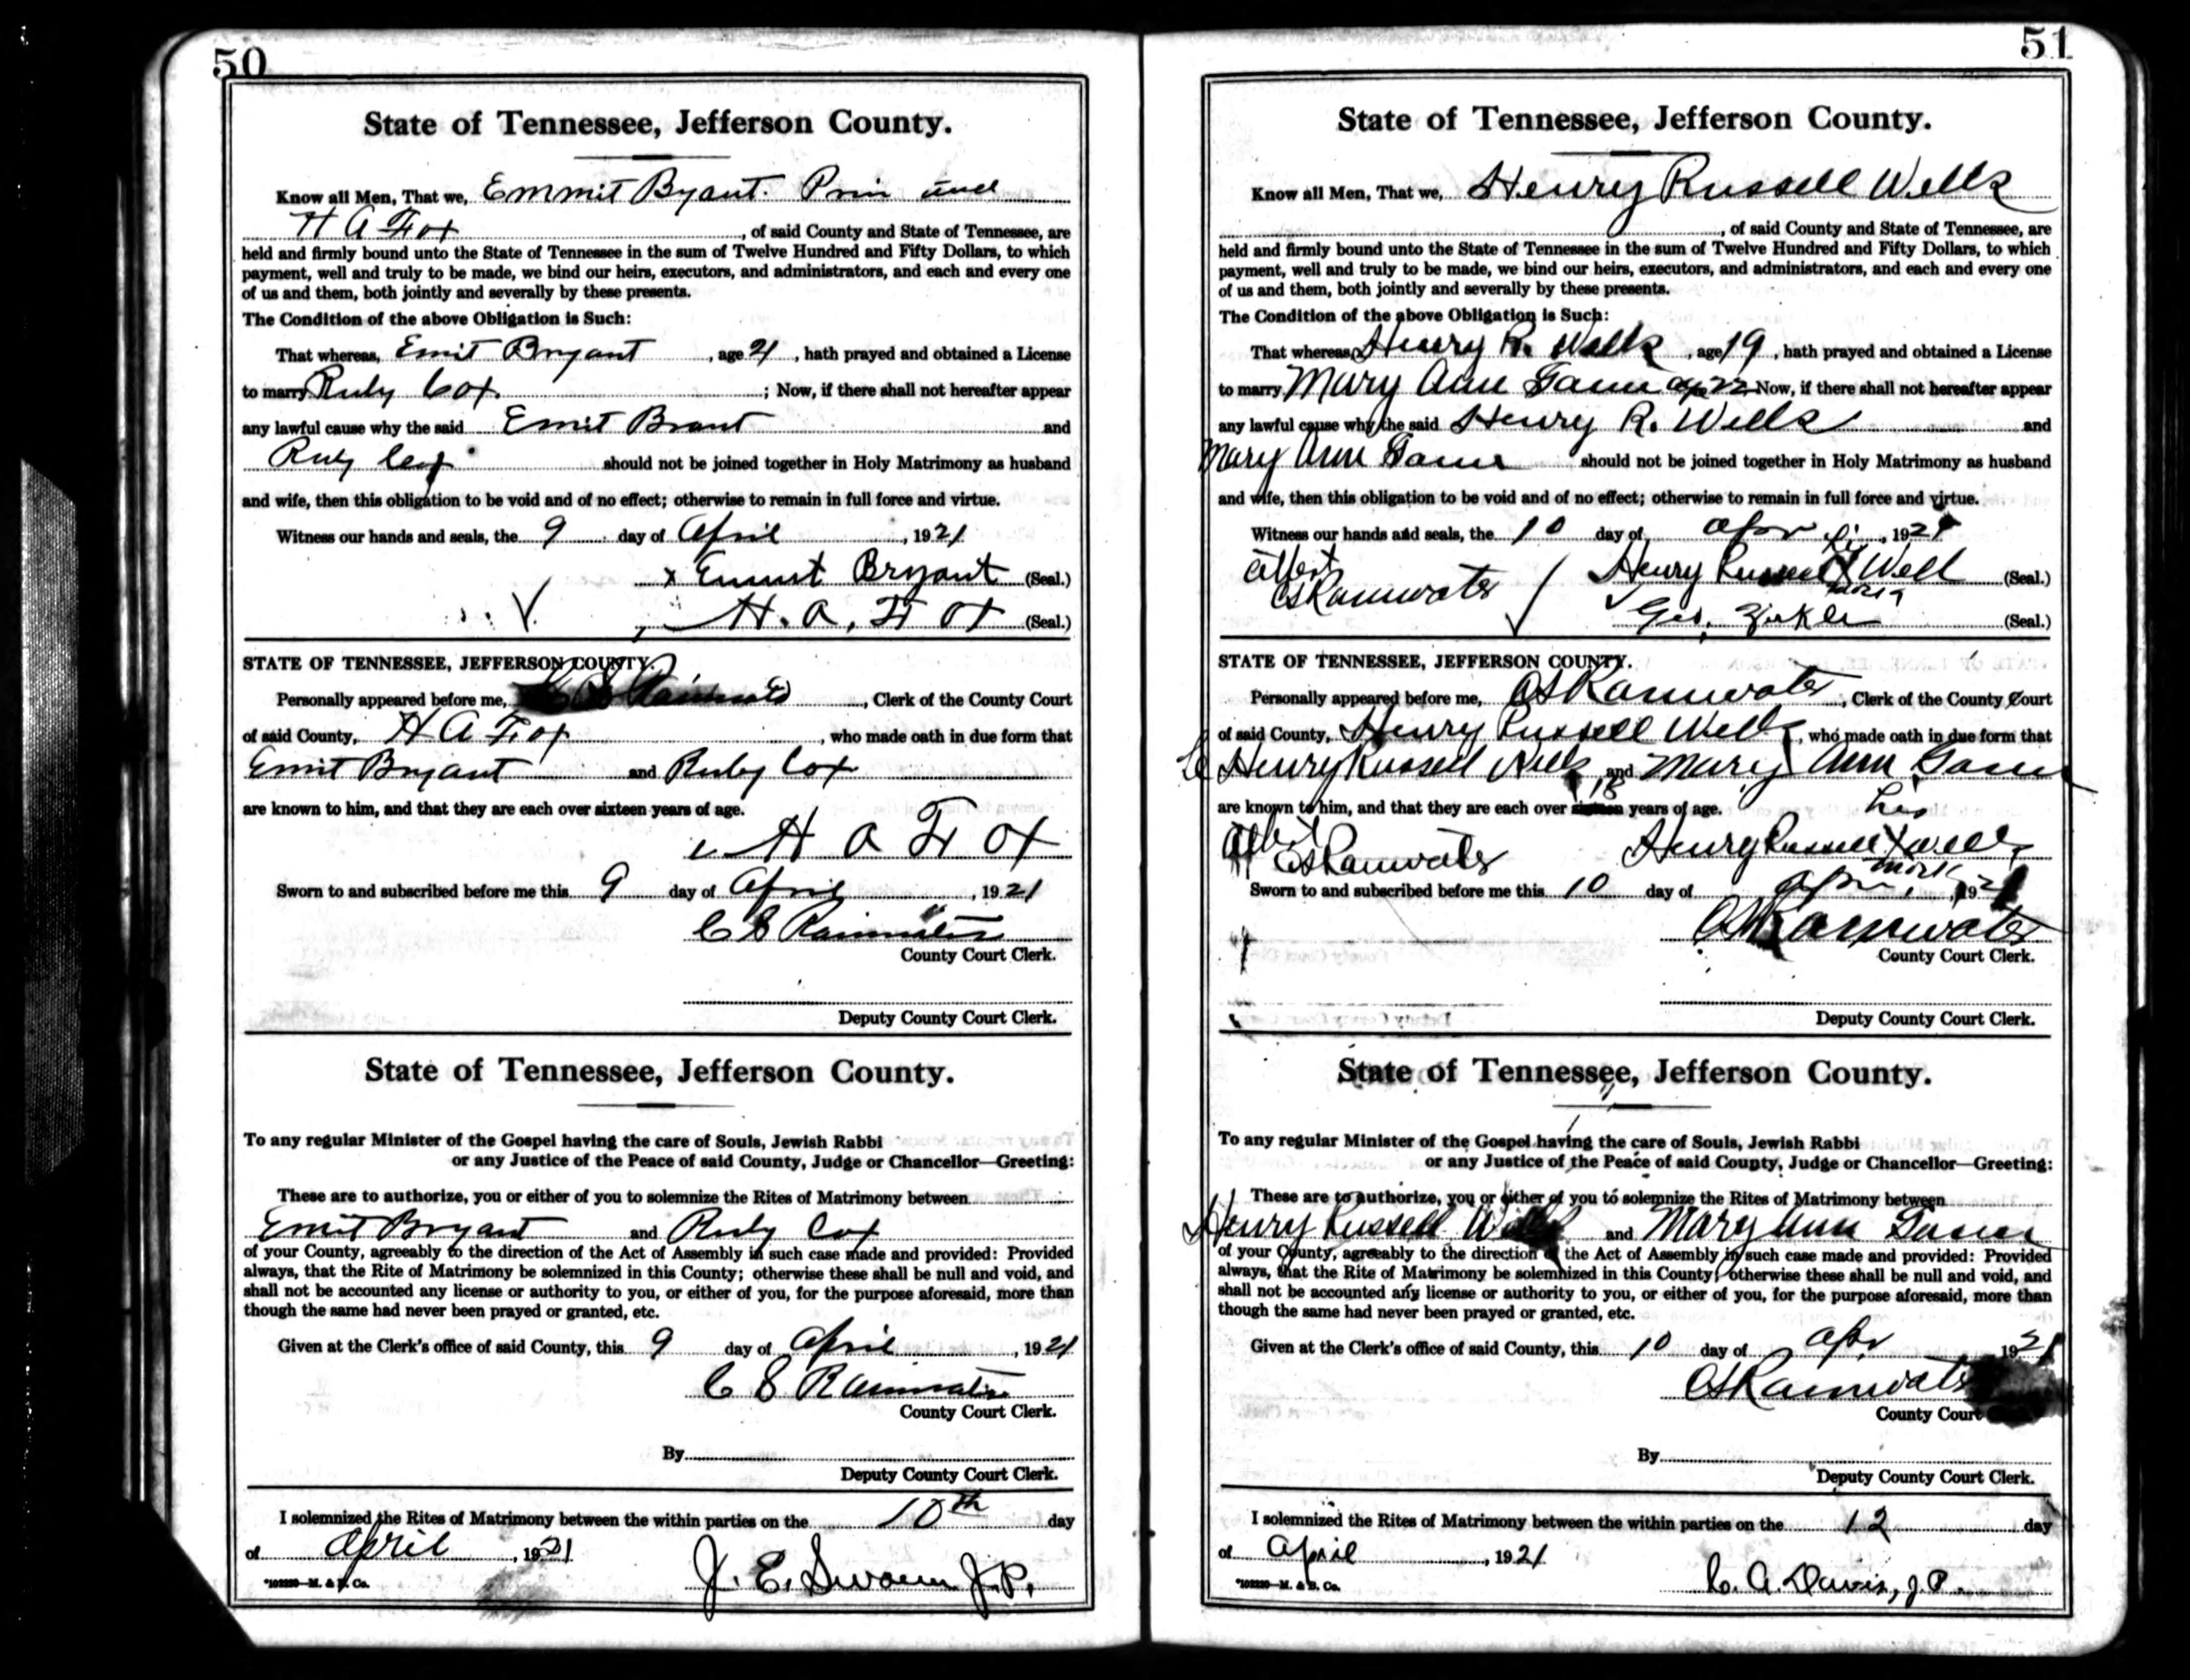 50
State of Tennessee, Jefferson County.
Know all Men, That we, Emmit Byant. Prin and
H A Fox, of said County and State of Tennessee, are
held and firmly bound unto the State of Tennessee in the sum of Twelve Hundred and Fifty Dollars, to which
payment, well and truly to be made, we bind our heirs, executors, and administrators, and each and every one
of us and them, both jointly and severally by these presents.
The Condition of the above Obligation is Such:
That whereas, Emit Bryant, age 21, hath prayed and obtained a License
to marry Ruly Cox.; Now, if there shall not hereafter appear
any lawful cause why the said Emit Brant and
Ruly Cox should not be joined together in Holy Matrimony as husband
and wife, then this obligation to be void and of no effect; otherwise to remain in full force and virtue.
Witness our hands and seals, the 9 day of April, 1921
x Emmit Bryant (Seal.)
H. A. Fox (Seal.)
STATE OF TENNESSEE, JEFFERSON COUNTY.
Personally appeared before me, C S Rainwater, Clerk of the County Court
of said County, H A Fox, who made oath in due form that
Emit Bryant and Ruby Cox
are known to him, and that they are each over sixteen years of age.
H A Fox
Sworn to and subscribed before me this 9 day of April, 1921
C S Rainwater
County Court Clerk.
Deputy County Court Clerk.
State of Tennessee, Jefferson County.
To any regular Minister of the Gospel having the care of Souls, Jewish Rabbi
or any Justice of the Peace of said County, Judge or Chancellor—Greeting:
These are to authorize, you or either of you to solemnize the Rites of Matrimony between
Emit Bryant and Ruly Cox
of your County, agreeably to the direction of the Act of Assembly in such case made and provided: Provided
always, that the Rite of Matrimony be solemnized in this County; otherwise these shall be null and void, and
shall not be accounted any license or authority to you, or either of you, for the purpose aforesaid, more than
though the same had never been prayed or granted, etc.
Given at the Clerk's office of said County, this 9 day of April, 1921
C S Rainwater
County Court Clerk.
By
Deputy County Court Clerk.
I solemnized the Rites of Matrimony between the within parties on the 10th day
of April, 1921
J. E. Swann J.P.
51
State of Tennessee, Jefferson County.
Know all Men, That we, Henry Russell Wells
, of said County and State of Tennessee, are
held and firmly bound unto the State of Tennessee in the sum of Twelve Hundred and Fifty Dollars, to which
payment, well and truly to be made, we bind our heirs, executors, and administrators, and each and every one
of us and them, both jointly and severally by these presents.
The Condition of the above Obligation is Such:
That whereas, Henry R. Wells, age 19, hath prayed and obtained a License
to marry Mary Ann age 22 Now, if there shall not hereafter appear
any lawful cause why the said Henry R. Wells and
Mary Ann should not be joined together in Holy Matrimony as husband
and wife, then this obligation to be void and of no effect; otherwise to remain in full force and virtue.
Witness our hands and seals, the 10 day of Apr, 1921
his
Attest Henry Russell X Well (Seal.)
CS Rainwater mark
Geo. Zirkle (Seal.)
STATE OF TENNESSEE, JEFFERSON COUNTY.
Personally appeared before me, CS Rainwater, Clerk of the County Court
of said County, Henry Russell Wells, who made oath in due form that
Henry Russell Wells and Mary Ann
18
are known to him, and that they are each over sixteen years of age.
his
Attest Henry Russell X Wells
CS Rainwater mark
Sworn to and subscribed before me this 10 day of Apr, 1921
CS Rainwater
County Court Clerk.
Deputy County Court Clerk.
State of Tennessee, Jefferson County.
To any regular Minister of the Gospel having the care of Souls, Jewish Rabbi
or any Justice of the Peace of said County, Judge or Chancellor—Greeting:
These are to authorize, you or either of you to solemnize the Rites of Matrimony between
Henry Russell Wells and Mary Ann
of your County, agreeably to the direction of the Act of Assembly in such case made and provided: Provided
always, that the Rite of Matrimony be solemnized in this County; otherwise these shall be null and void, and
shall not be accounted any license or authority to you, or either of you, for the purpose aforesaid, more than
though the same had never been prayed or granted, etc.
Given at the Clerk's office of said County, this 10 day of Apr 1921
CS Rainwater
County Court
By
Deputy County Court Clerk.
I solemnized the Rites of Matrimony between the within parties on the 12 day
of April, 1921
C. A. Davis, J.P.